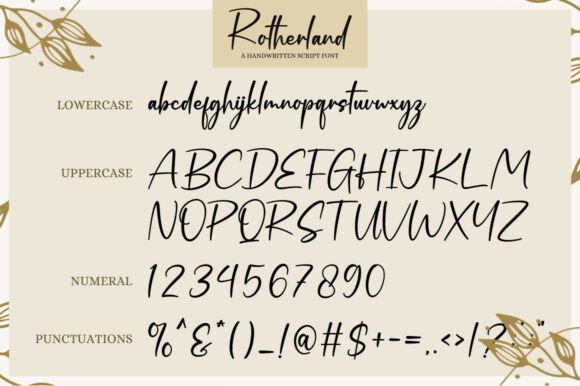 Rotherland
A HANDWRITTEN SCRIPT FONT
LOWERCASE abcdefghijklmnopqrstuvwxyz
UPPERCASE ABCDEFGHIJKLM
NOPQRSTUVWXYZ
NUMERAL 1234567890
PUNCTUATIONS %^&*()_!@#$+-=,.<>|/?:;'"